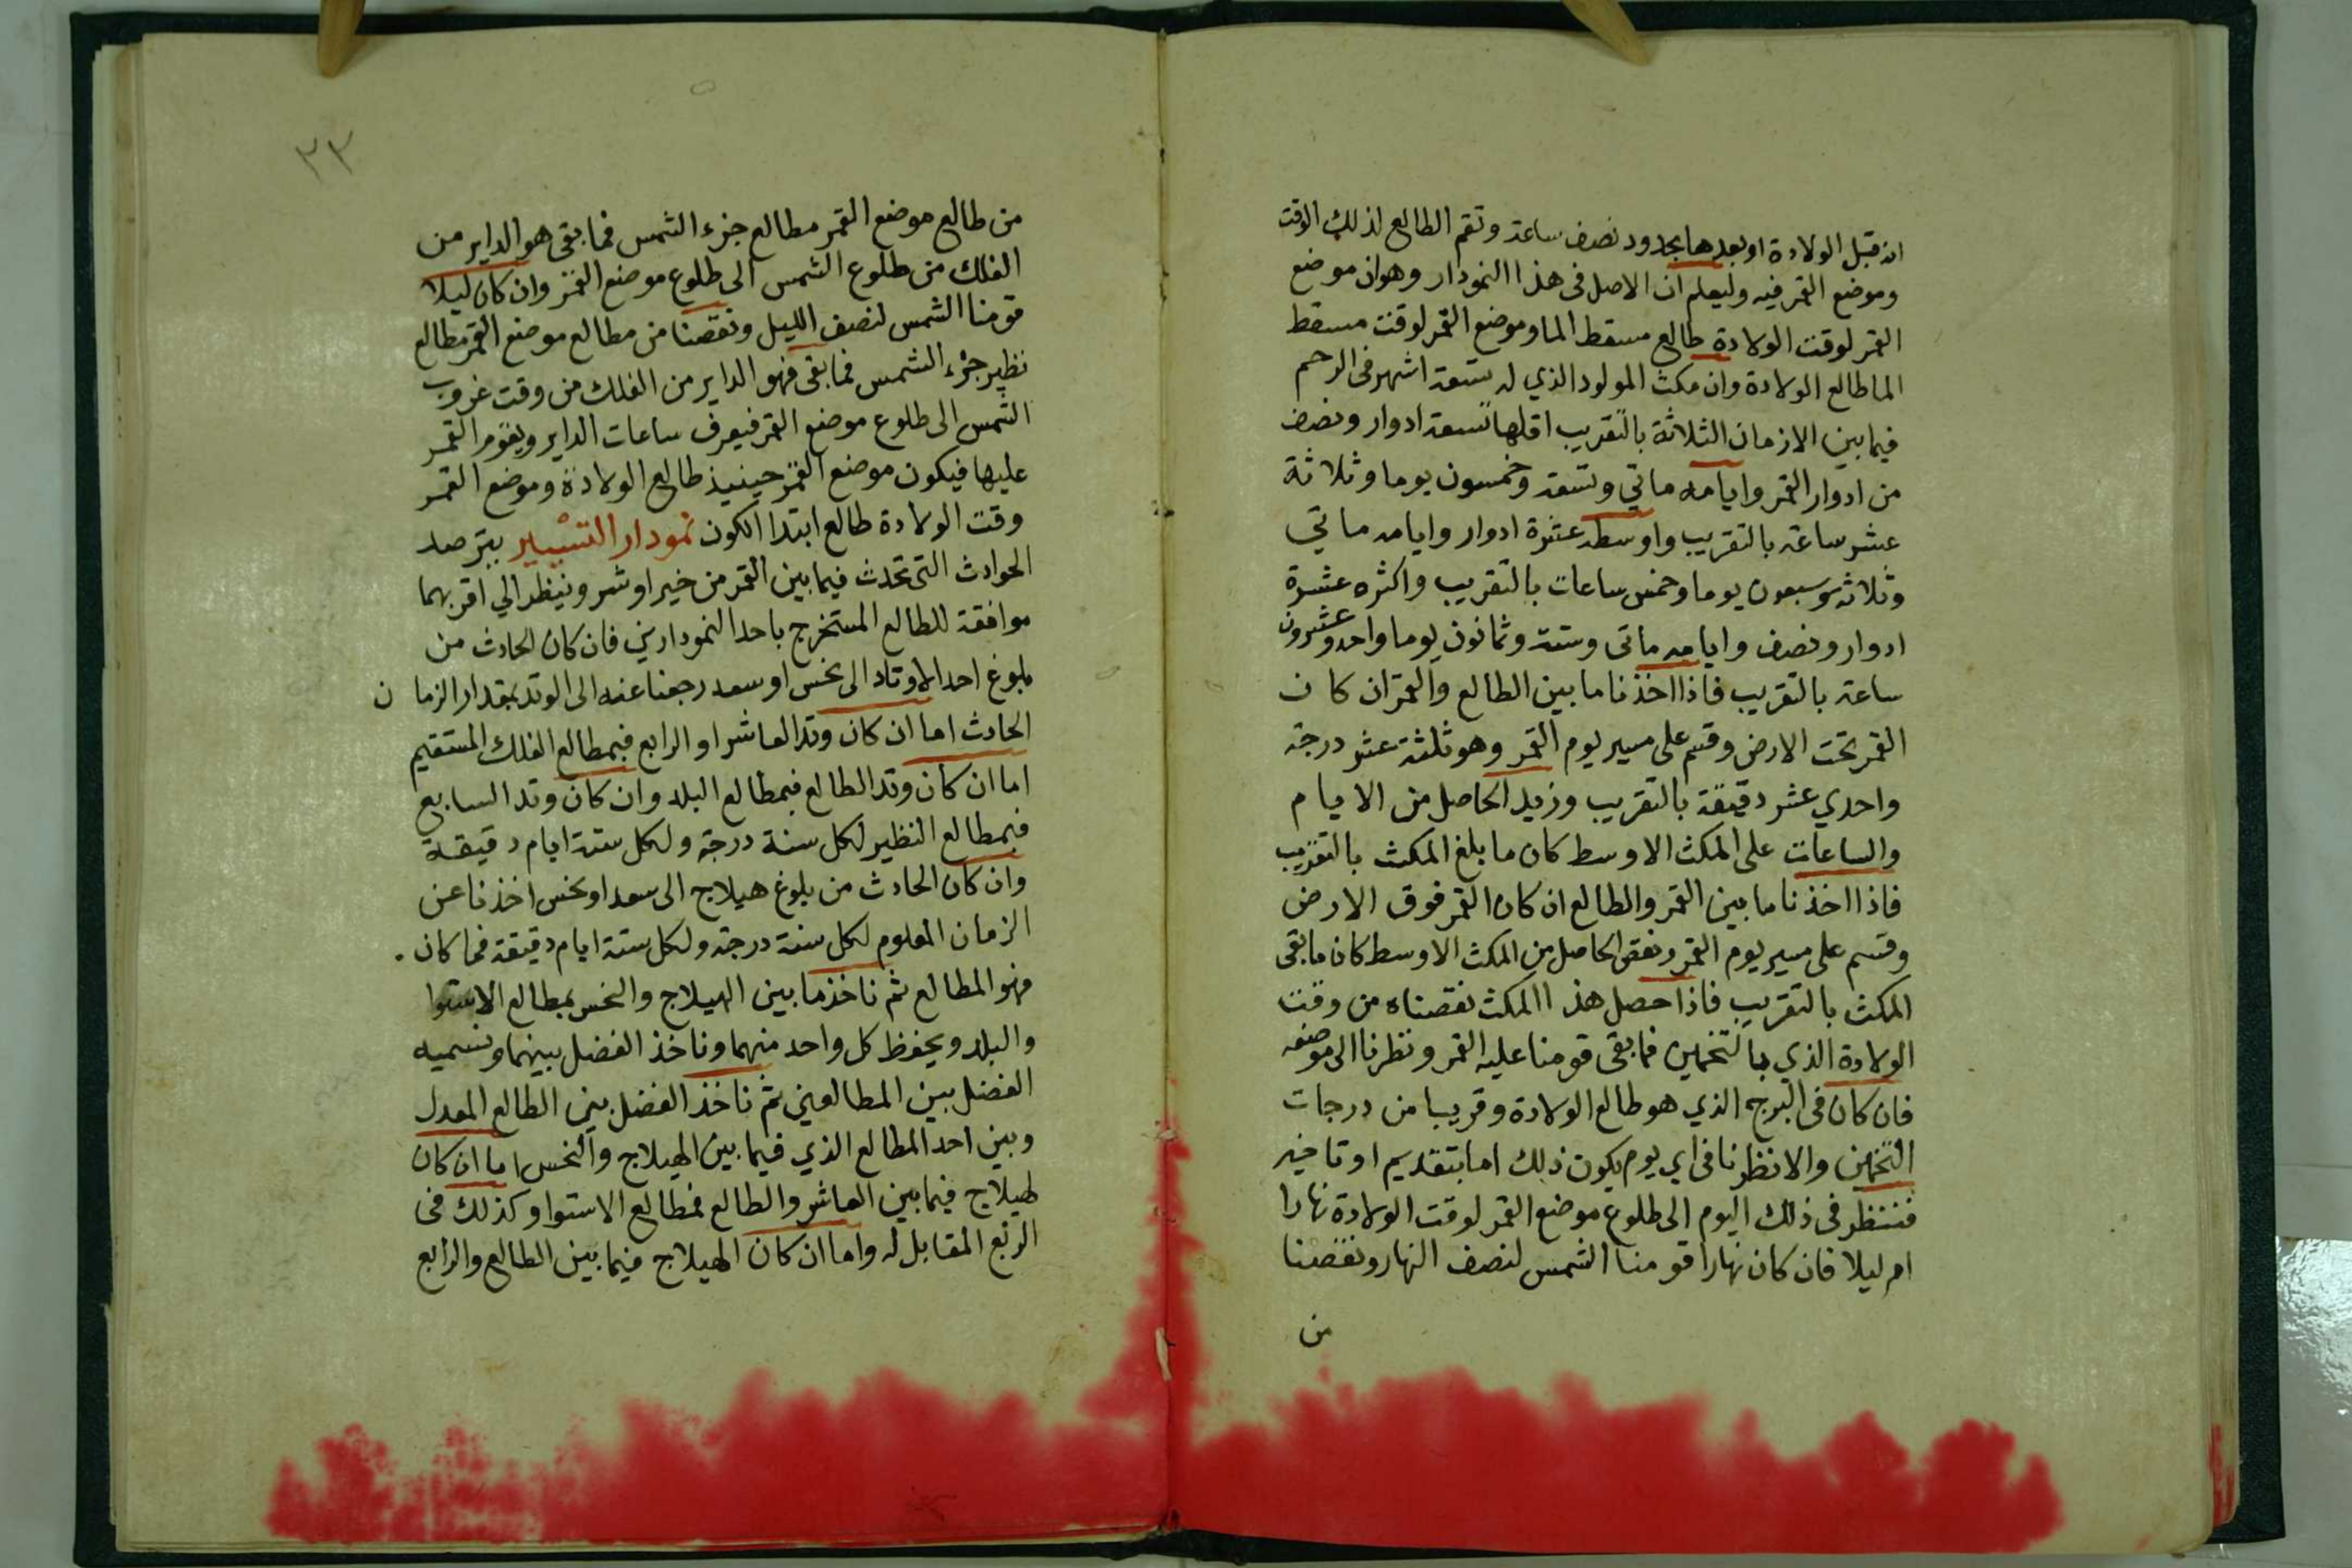 انه قبل الولادة او بعدها بحدود نصف ساعة وتقم الطالع لذلك الوقت
وموضع القمر فيه وليعلم ان الاصل فى هذا النمودار وهو ان موضع
القمر لوقت الولادة طالع مسقط الما وموضع القمر لوقت مسقط
الما طالع الولادة وان مكث المولود الذي له ستعة اشهر فى الرحم
فيما بين الازمان الثلاثة بالتقريب اقلها تسعة ادوار ونصف
من ادوار القمر وايامه ماتي وتسعة وخمسون يوما وثلاثة
عشر ساعة بالتقريب واوسطه عشرة ادوار وايامه ماتي
وثلاثه وسبعون يوما وخمس ساعات بالتقريب واكثره عشرة
ادوار ونصف وايامه ماتى وستة وثمانون يوما واحد وعشرون
ساعة بالتقريب فاذا اخذنا ما بين الطالع والقمر ان كان
القمر تحت الارض وقسم على مسير يوم القمر وهو ثلثة عشر درجة
واحدي عشر دقيقة بالتقريب وزيد الحاصل من الايام
والساعات على المكث الاوسط كان ما بلغ المكث بالتقريب
فاذا اخذنا ما بين القمر والطالع ان كان القمر فوق الارض
وقسم على مسير يوم القمر ونقص الحاصل من المكث الاوسط كان ما بقى
المكث بالتقريب فاذا حصل هذا المكث نقصناه من وقت
الولادة الذي بالتخمين فما بقى قومنا عليه القمر ونظرنا الى موضعه
فان كان فى البرج الذي هو طالع الولادة وقريبا من درجات
التخمين والا نظرنا فى اي يوم يكون ذلك اما بتقديم او تاخير
فننظر فى ذلك اليوم الى طلوع موضع القمر لوقت الولادة نهارا
ام ليلا فان كان نهارا قومنا الشمس لنصف النهار ونقصنا
من
٣٣
من طالع موضع القمر مطالع جزء الشمس فما بقى هو الداير من
الفلك من طلوع الشمس الى طلوع موضع القمر وان كان ليلا
قومنا الشمس لنصف الليل ونقصنا من مطالع موضع القمر مطالع
نظير جزء الشمس فما بقى فهو الداير من الفلك من وقت غروب
الشمس الى طلوع موضع القمر فيعرف ساعات الداير ويقوم القمر
عليها فيكون موضع القمر حينيذ طالع الولادة وموضع القمر
وقت الولادة طالع ابتدا الكون نمودار التسيير يترصد
الحوادث التى تحدث فيما بين القمر من خير او شر وينظر الي اقربهما
موافقة للطالع المستخرج باحد النمودارين فان كان الحادث من
بلوغ احد الاوتاد الى نحس او سعد رجعنا عنه الى الوتد بمقدار الزمان
الحادث اما ان كان وتد العاشر او الرابع فبمطالع الفلك المستقيم
اما ان كان وتد الطالع فبمطالع البلد وان كان وتد السابع
فبمطالع النظير لكل سنة درجة ولكل ستة ايام دقيقة
وان كان الحادث من بلوغ هيلاج الى سعد او نحس اخذنا عن
الزمان المعلوم لكل سنة درجة ولكل ستة ايام دقيقة فما كان
فهو المطالع ثم ناخذ ما بين الهيلاج والنحس بمطالع الاستوا
والبلد ويحفظ كل واحد منهما وناخذ الفضل بينهما ونسميه
الفضل بين المطالعين ثم ناخذ الفضل بين الطالع المعدل
وبين احد المطالع الذي فيما بين الهيلاج والنحس اما ان كان
لهيلاج فيما بين العاشر والطالع فمطالع الاستوا وكذلك فى
الربع المقابل له واما ان كان الهيلاج فيما بين الطالع والرابع